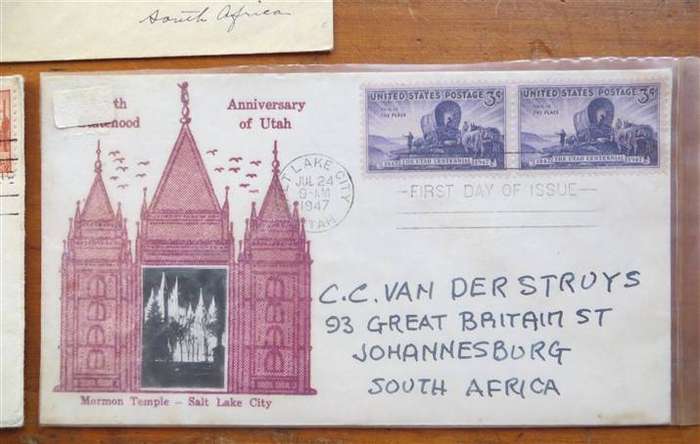 South Africa
th
Anniversary
Statehood
of Utah
UNITED STATES POSTAGE 3¢
THIS IS
THE PLACE
1847 THE UTAH CENTENNIAL 1947
UNITED STATES POSTAGE 3¢
THIS IS
THE PLACE
1847 THE UTAH CENTENNIAL 1947
SALT LAKE CITY
JUL 24
9-AM
1947
UTAH
FIRST DAY OF ISSUE
C.C. VAN DER STRUYS
93 GREAT BRITAIN ST
JOHANNESBURG
SOUTH AFRICA
Mormon Temple - Salt Lake City